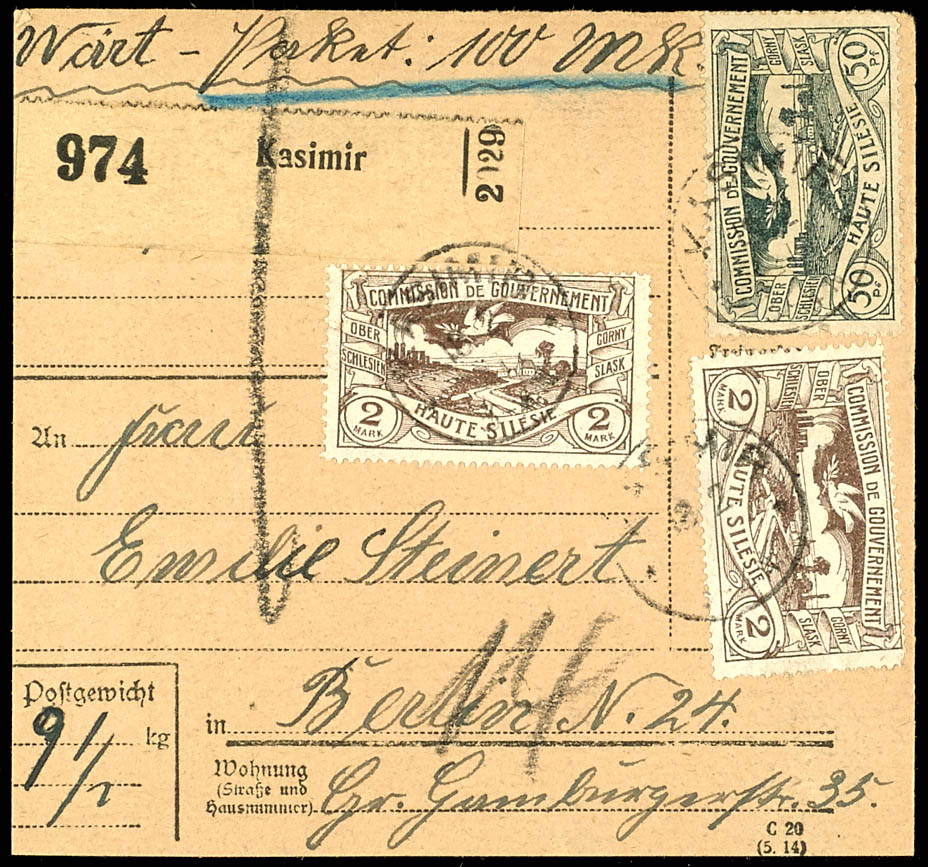 Wärt - Paket: 100 Mk.
974 Kasimir 2029
COMMISSION DE GOUVERNEMENT
OBER SCHLESIEN
GORNY SLASK
HAUTE SILESIE
50 PF
50 PF
COMMISSION DE GOUVERNEMENT
OBER SCHLESIEN
GORNY SLASK
2 MARK
HAUTE SILESIE
2 MARK
COMMISSION DE GOUVERNEMENT
OBER SCHLESIEN
GORNY SLASK
2 MARK
HAUTE SILESIE
2 MARK
An Frau
Emilie Steinert
Postgewicht
9 1/2 kg
in Berlin N. 24.
Wohnung
(Straße und
Hausnummer) Gr. Hamburgerstr. 35.
C 20
(5. 14)